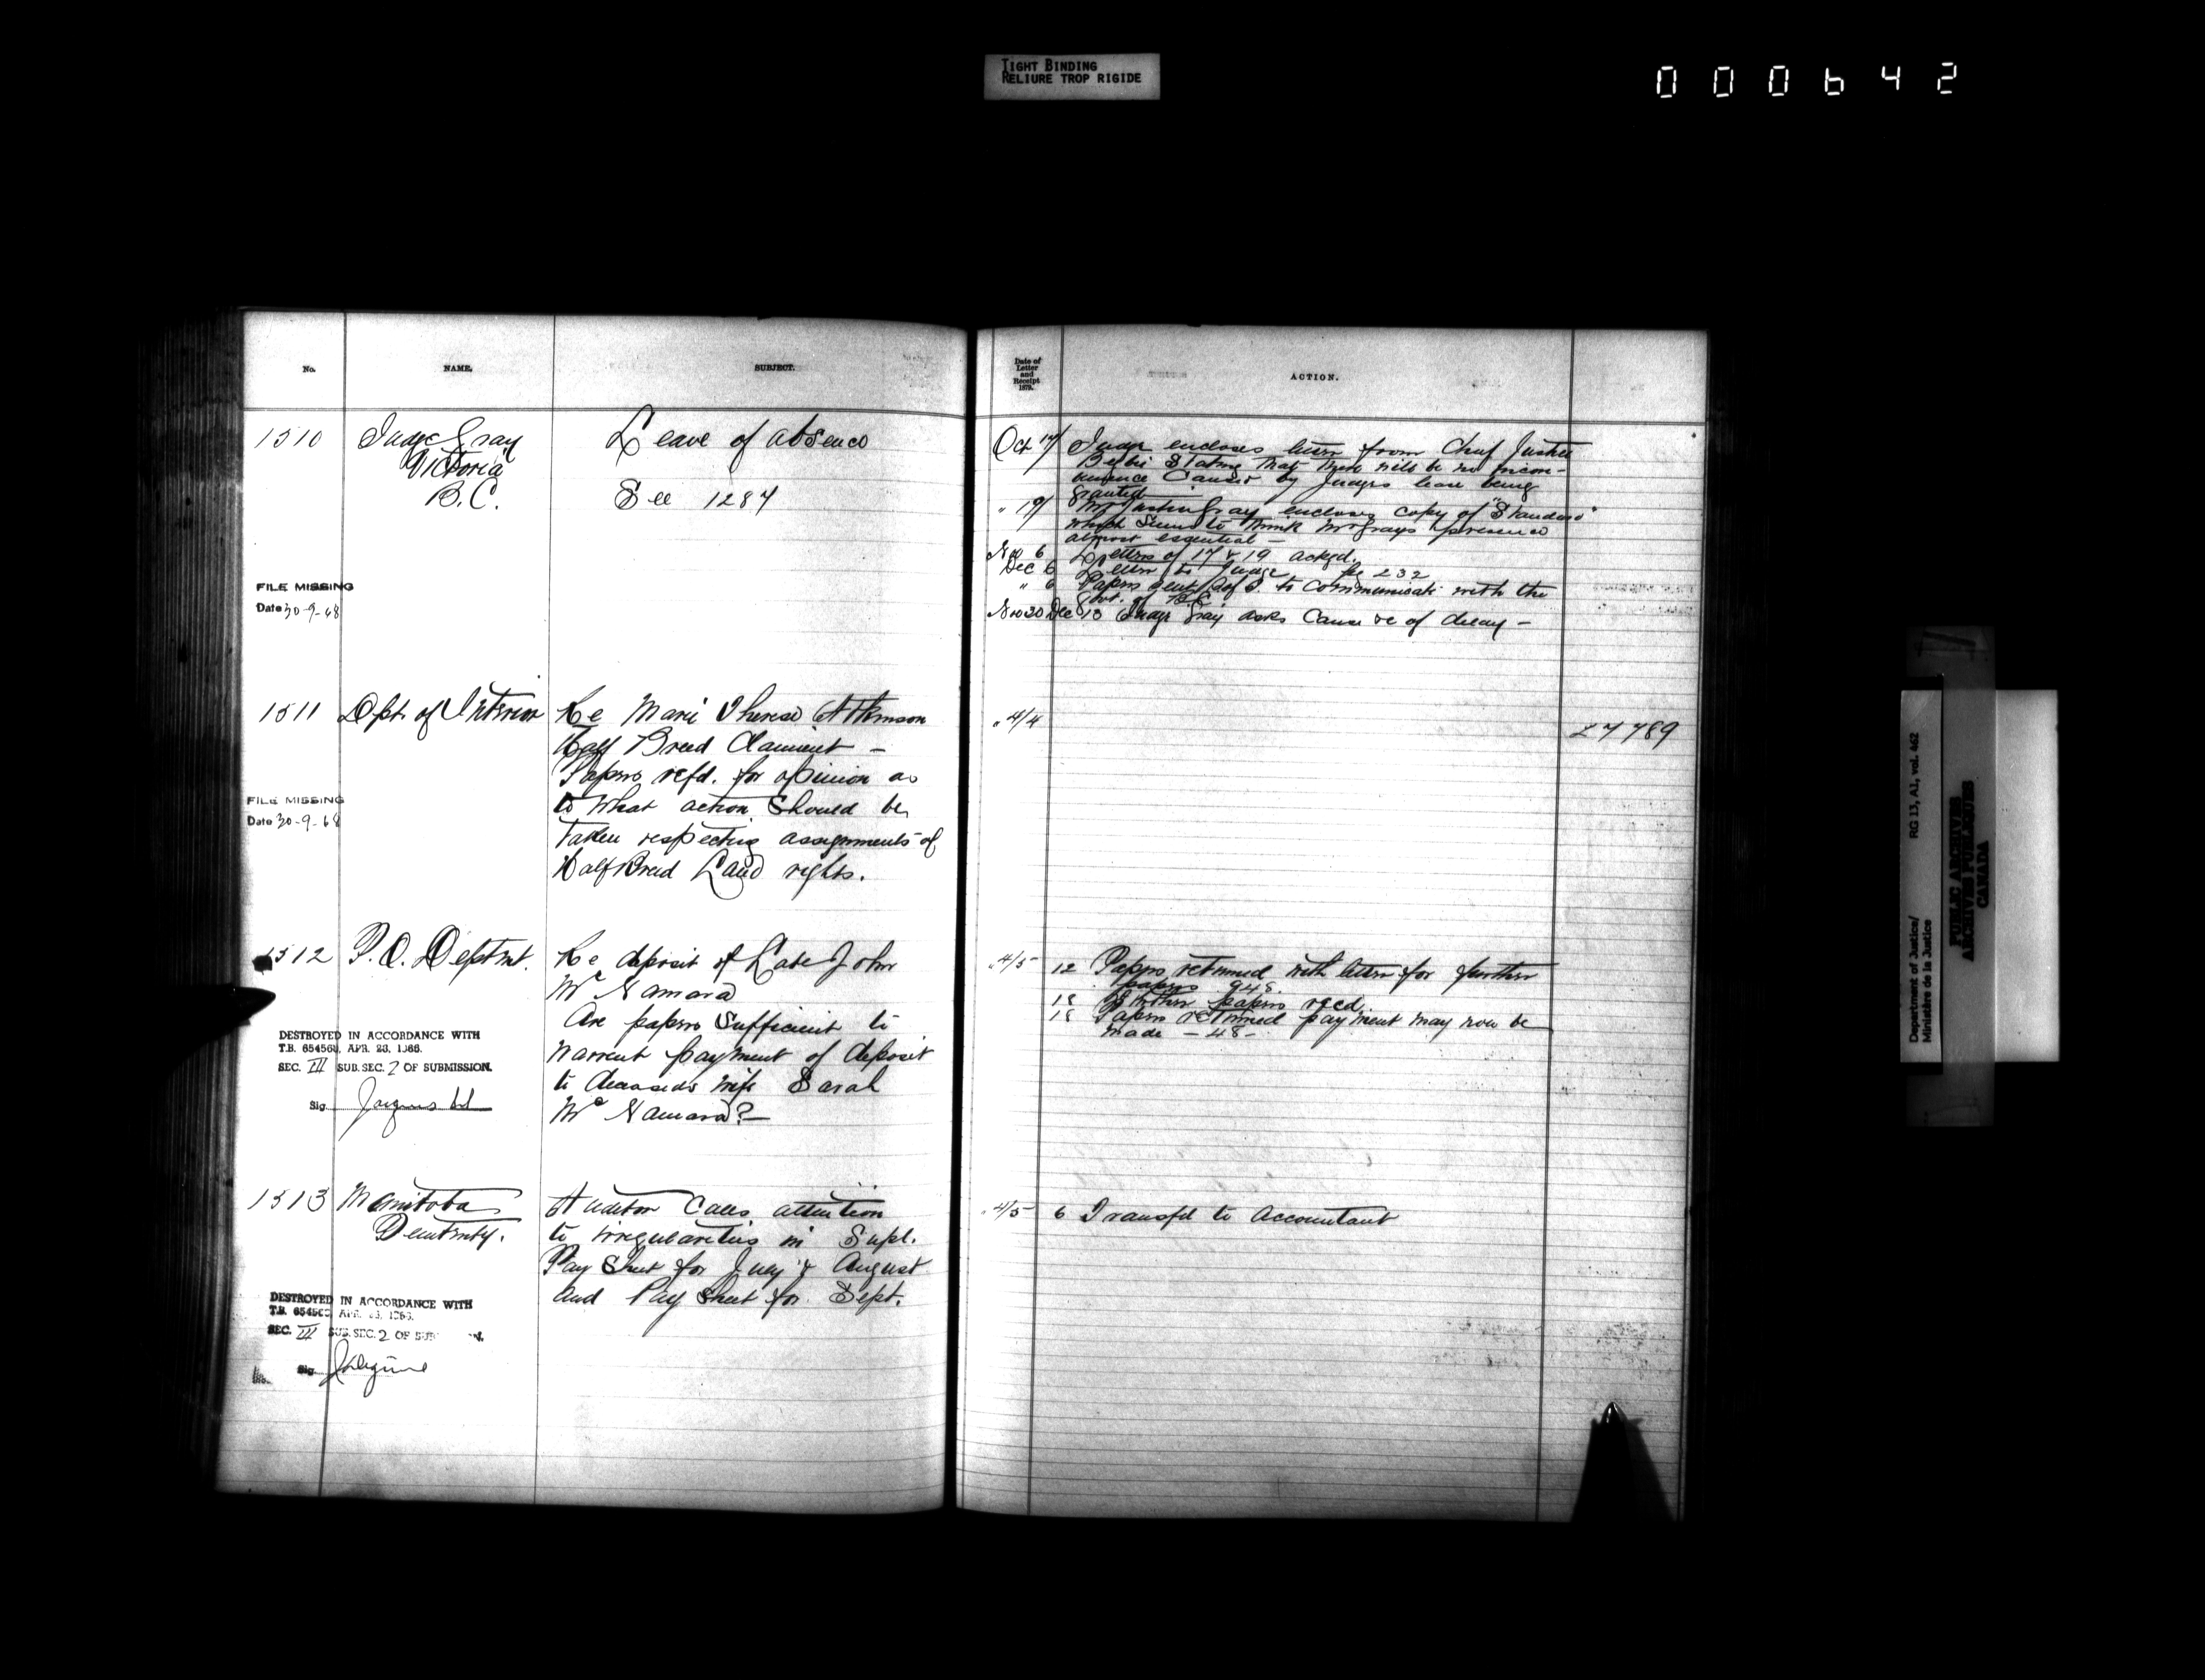 TIGHT BINDING
RELIURE TROP RIGIDE
000642
No.
NAME.
SUBJECT.
1510
Judge Gray
Victoria
B.C.
Leave of absence
See 1287
FILE MISSING
Date 30-9-68
1511
Dpt. of Interior
Re Marie Therese Atkinson
Half Breed Claimant –
Papers refd. for opinion as
to what action should be
taken respecting assignments of
Half Breed Land rights.
FILE MISSING
Date 30-9-68
1512
P.O. Deptmt.
Re deposit of Late John
McNamara
Are papers sufficient to
warrent payment of deposit
to deceaseds wife Sarah
McNamara? –
DESTROYED IN ACCORDANCE WITH
T.B. 654560, APR. 23, 1966.
SEC. III SUB. SEC. 2 OF SUBMISSION.
Sig.
1513
Manitoba
Penitenty.
Auditor calls attention
to irregularities in Supl.
Pay Sheet for July & August
and Pay Sheet for Sept.
DESTROYED IN ACCORDANCE WITH
T.B. 654560, APR. 23, 1966.
SEC. III SUB. SEC. 2 OF
Sig.
Date of
Letter
and
Receipt
1879.
ACTION.
Oct 17/ Judge encloses letter from Chief Justice
Begbie Stating that there will be no incon-
venience Caused by Judges leave being
granted
" 19/ Mr Justice Gray encloses copy of "Standard"
which seems to think Mr Grays presence
almost essential –
Nov 6 Letters of 17 & 19 ackgd.
Dec 6 Letter to Judge 232
" 6 Papers sent S of S. to communicate with the
Govt. of B.C.
Nov 30 Dec 13 Judge Gray asks Cause of delay –
" 4/4
27789
" 4/5 12 Papers returned with letter for further
papers 948.
18 Further papers recd
18 Papers returned payment may now be
made – 48 –
" 4/5 6 Transfd to Accountant
Department of Justice/
Ministère de la Justice
RG 13, A1, vol. 462
PUBLIC ARCHIVES
ARCHIVES PUBLIQUES
CANADA